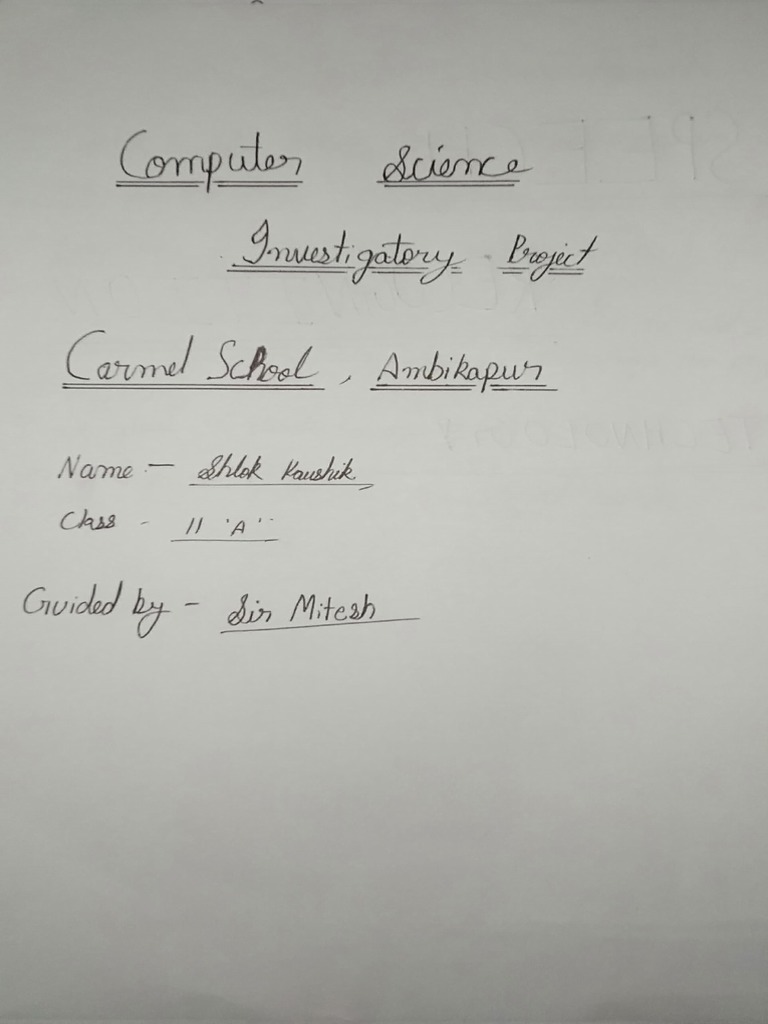 Computer Science
Investigatory Project
Carmel School, Ambikapur
Name - Shlok Kaushik
Class - 11 'A'
Guided by - Sir Mitesh